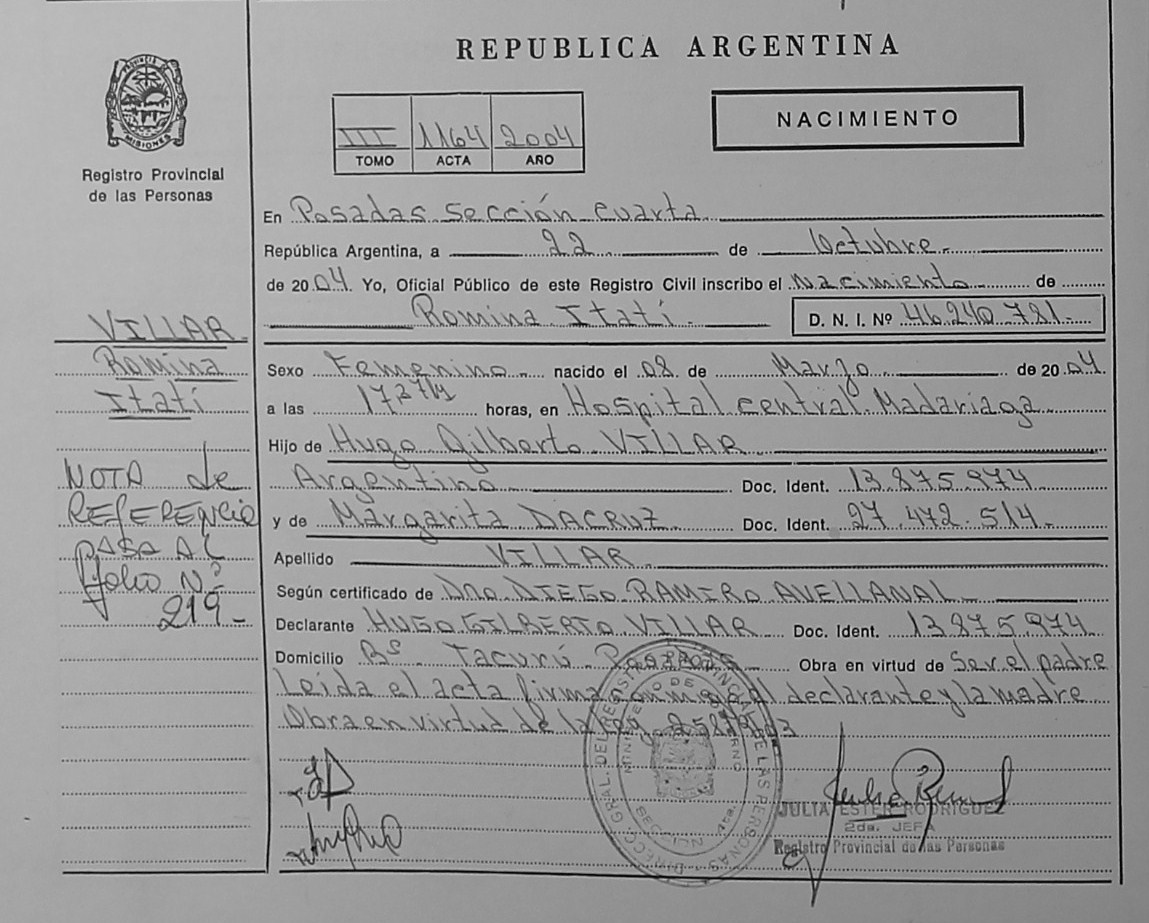 REPUBLICA ARGENTINA
PROVINCIA DE MISIONES
Registro Provincial
de las Personas
III 1164 2004
TOMO ACTA AÑO
NACIMIENTO
En Posadas Sección Cuarta
República Argentina, a 22 de Octubre
de 2004. Yo, Oficial Público de este Registro Civil inscribo el nacimiento de
Romina Itatí. D. N. I. Nº 46.240.781.
Sexo Femenino nacido el 08 de Marzo de 2004
a las 17 27 horas, en Hospital central Madariaga
Hijo de Hugo Gilberto VILLAR
Argentino Doc. Ident. 13.875.974
y de Margarita DACRUZ Doc. Ident. 27.472.514.
Apellido VILLAR
Según certificado de Dno. DIEGO RAMIRO AVELLANAL
Declarante HUGO GILBERTO VILLAR Doc. Ident. 13875.974
Domicilio Bº Tacurú Posadas Obra en virtud de Ser el padre
Leída el acta firman conmigo el declarante y la madre
Obra en virtud de la Ley 25819/03
VILLAR
Romina
Itatí
NOTA de
REFERENCIA
PASA AL
folio Nº
219-
DIRECC. GRAL. DEL REGISTRO PROVINCIAL DE LAS PERSONAS
MINISTERIO DE GOBIERNO
JULIA ESTER RODRIGUEZ
2da. JEFA
Registro Provincial de las Personas